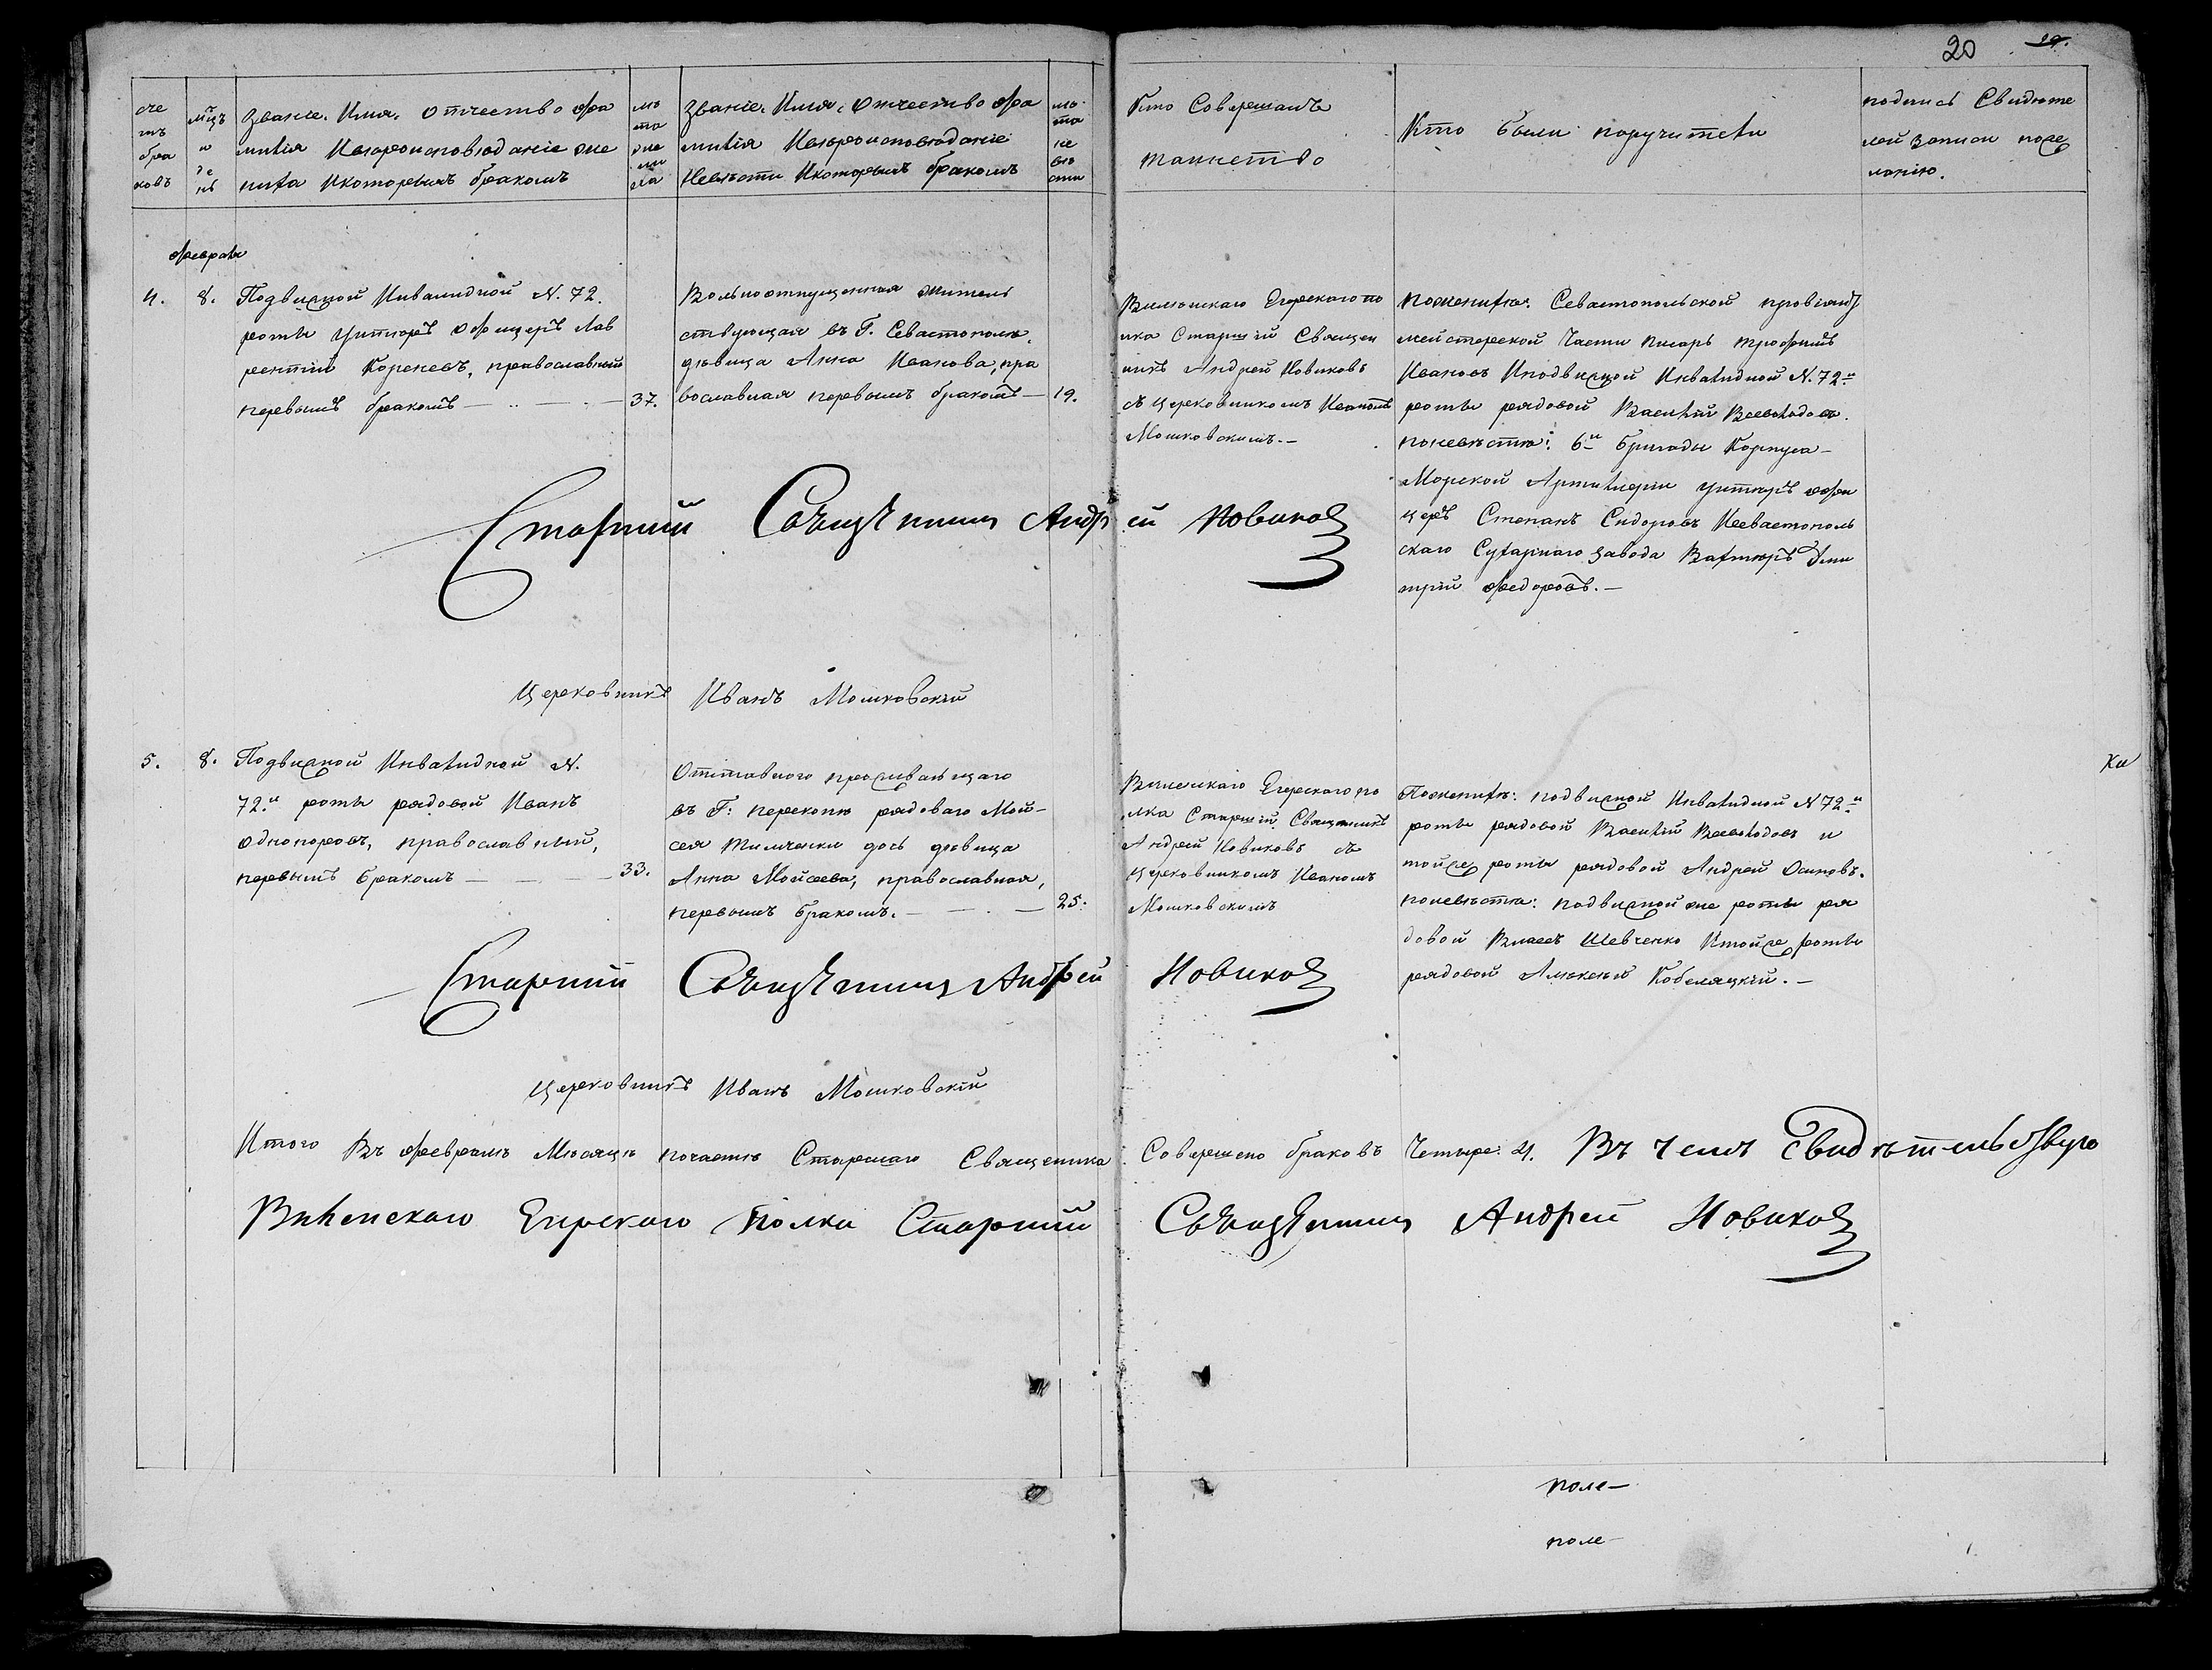 20 19.
сче
тъ
бра
ковъ
мцъ
и
де
нь
Званіе. Имя. Отчество Фа
милія Ивероисповѣданіе же
ниха Икоторымъ бракомъ
лѣ
та
же
ни
ха
Званіе. Имя. Отчество Фа
милія Ивероисповѣданіе
Невѣсты Икоторымъ бракомъ
лѣ
та
не
вѣ
сты
Кто Совершалъ
таинство
Кто были поручители
подпись Свидѣте
лей записи поже
ланію.
Февраля
4. 8.
Подвижной Инвалидной N. 72.
роты Унтеръ Офицеръ Лав
рентій Кореневъ, православный
первымъ бракомъ
37.
Вольноотпущенная жител
ствующая въ Г. Севастополѣ.
дѣвица Анна Иванова, пра
вославная первымъ бракомъ
19.
Виленскаго Егерскаго по
лка Старшій Священ
никъ Андрей Новиковъ
съ церковникомъ Иваномъ
Мошковскимъ.
поженихѣ. Севастопольской провіянт
мейстерской Части писарь Трофимъ
Ивановъ Иподвижной Инвалидной N. 72й
роты рядовой Василій Всеволодовъ.
поневѣстѣ: 6й бригады Корпуса
Морской Артилеріи унтеръ офи
церъ Степанъ Сидоровъ Исевастополь
скаго Сухарнаго завода Вахтеръ Дми
трій Федоровъ.
Старшій Священникъ Андрей Новиковъ
Церковникъ Иванъ Мошковскій
5. 8.
Подвижной Инвалидной N.
72.й роты рядовой Иванъ
Однопоровъ, православный,
первымъ бракомъ
33.
Отставного проживающаго
въ Г: перекопѣ рядоваго Мой-
сея Тимченки дочь дѣвица
Анна Мойсеева, православная,
первымъ бракомъ.
25.
Виленскаго Егерскаго по
лка Старшій Священникъ
Андрей Новиковъ съ
церковникомъ Иваномъ
Мошковскимъ
Поженихѣ: подвижной Инвалидной N 72й
роты рядовой Василій Всеволодовъ и
тойже роты рядовой Андрей Осиповъ.
поневѣстѣ: подвижной же роты ря
довой Власъ Шевченко Итойже роты
рядовой Алексѣй Кобеляцкій.
Ка
Старшій Священникъ Андрей Новиковъ
Церковникъ Иванъ Мошковскій
Итого Въ Февралѣ Мѣсяцѣ почасти Старшаго Священика Совершено браковъ Четыре. 4. Въ чемъ Свидѣтельствую
Виленскаго Егерскаго Полка Старшій Священникъ Андрей Новиковъ
поле
поле